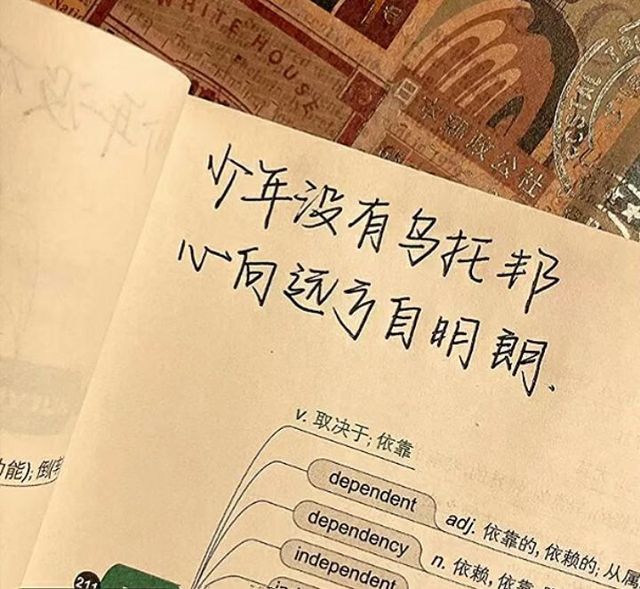 WHITE HOUSE
POSTAL
少年没有乌托邦
心向远方自明朗.
v. 取决于; 依靠
dependent
adj. 依靠的, 依赖的; 从属
dependency
n. 依赖, 依靠
independent
能); 倒
211